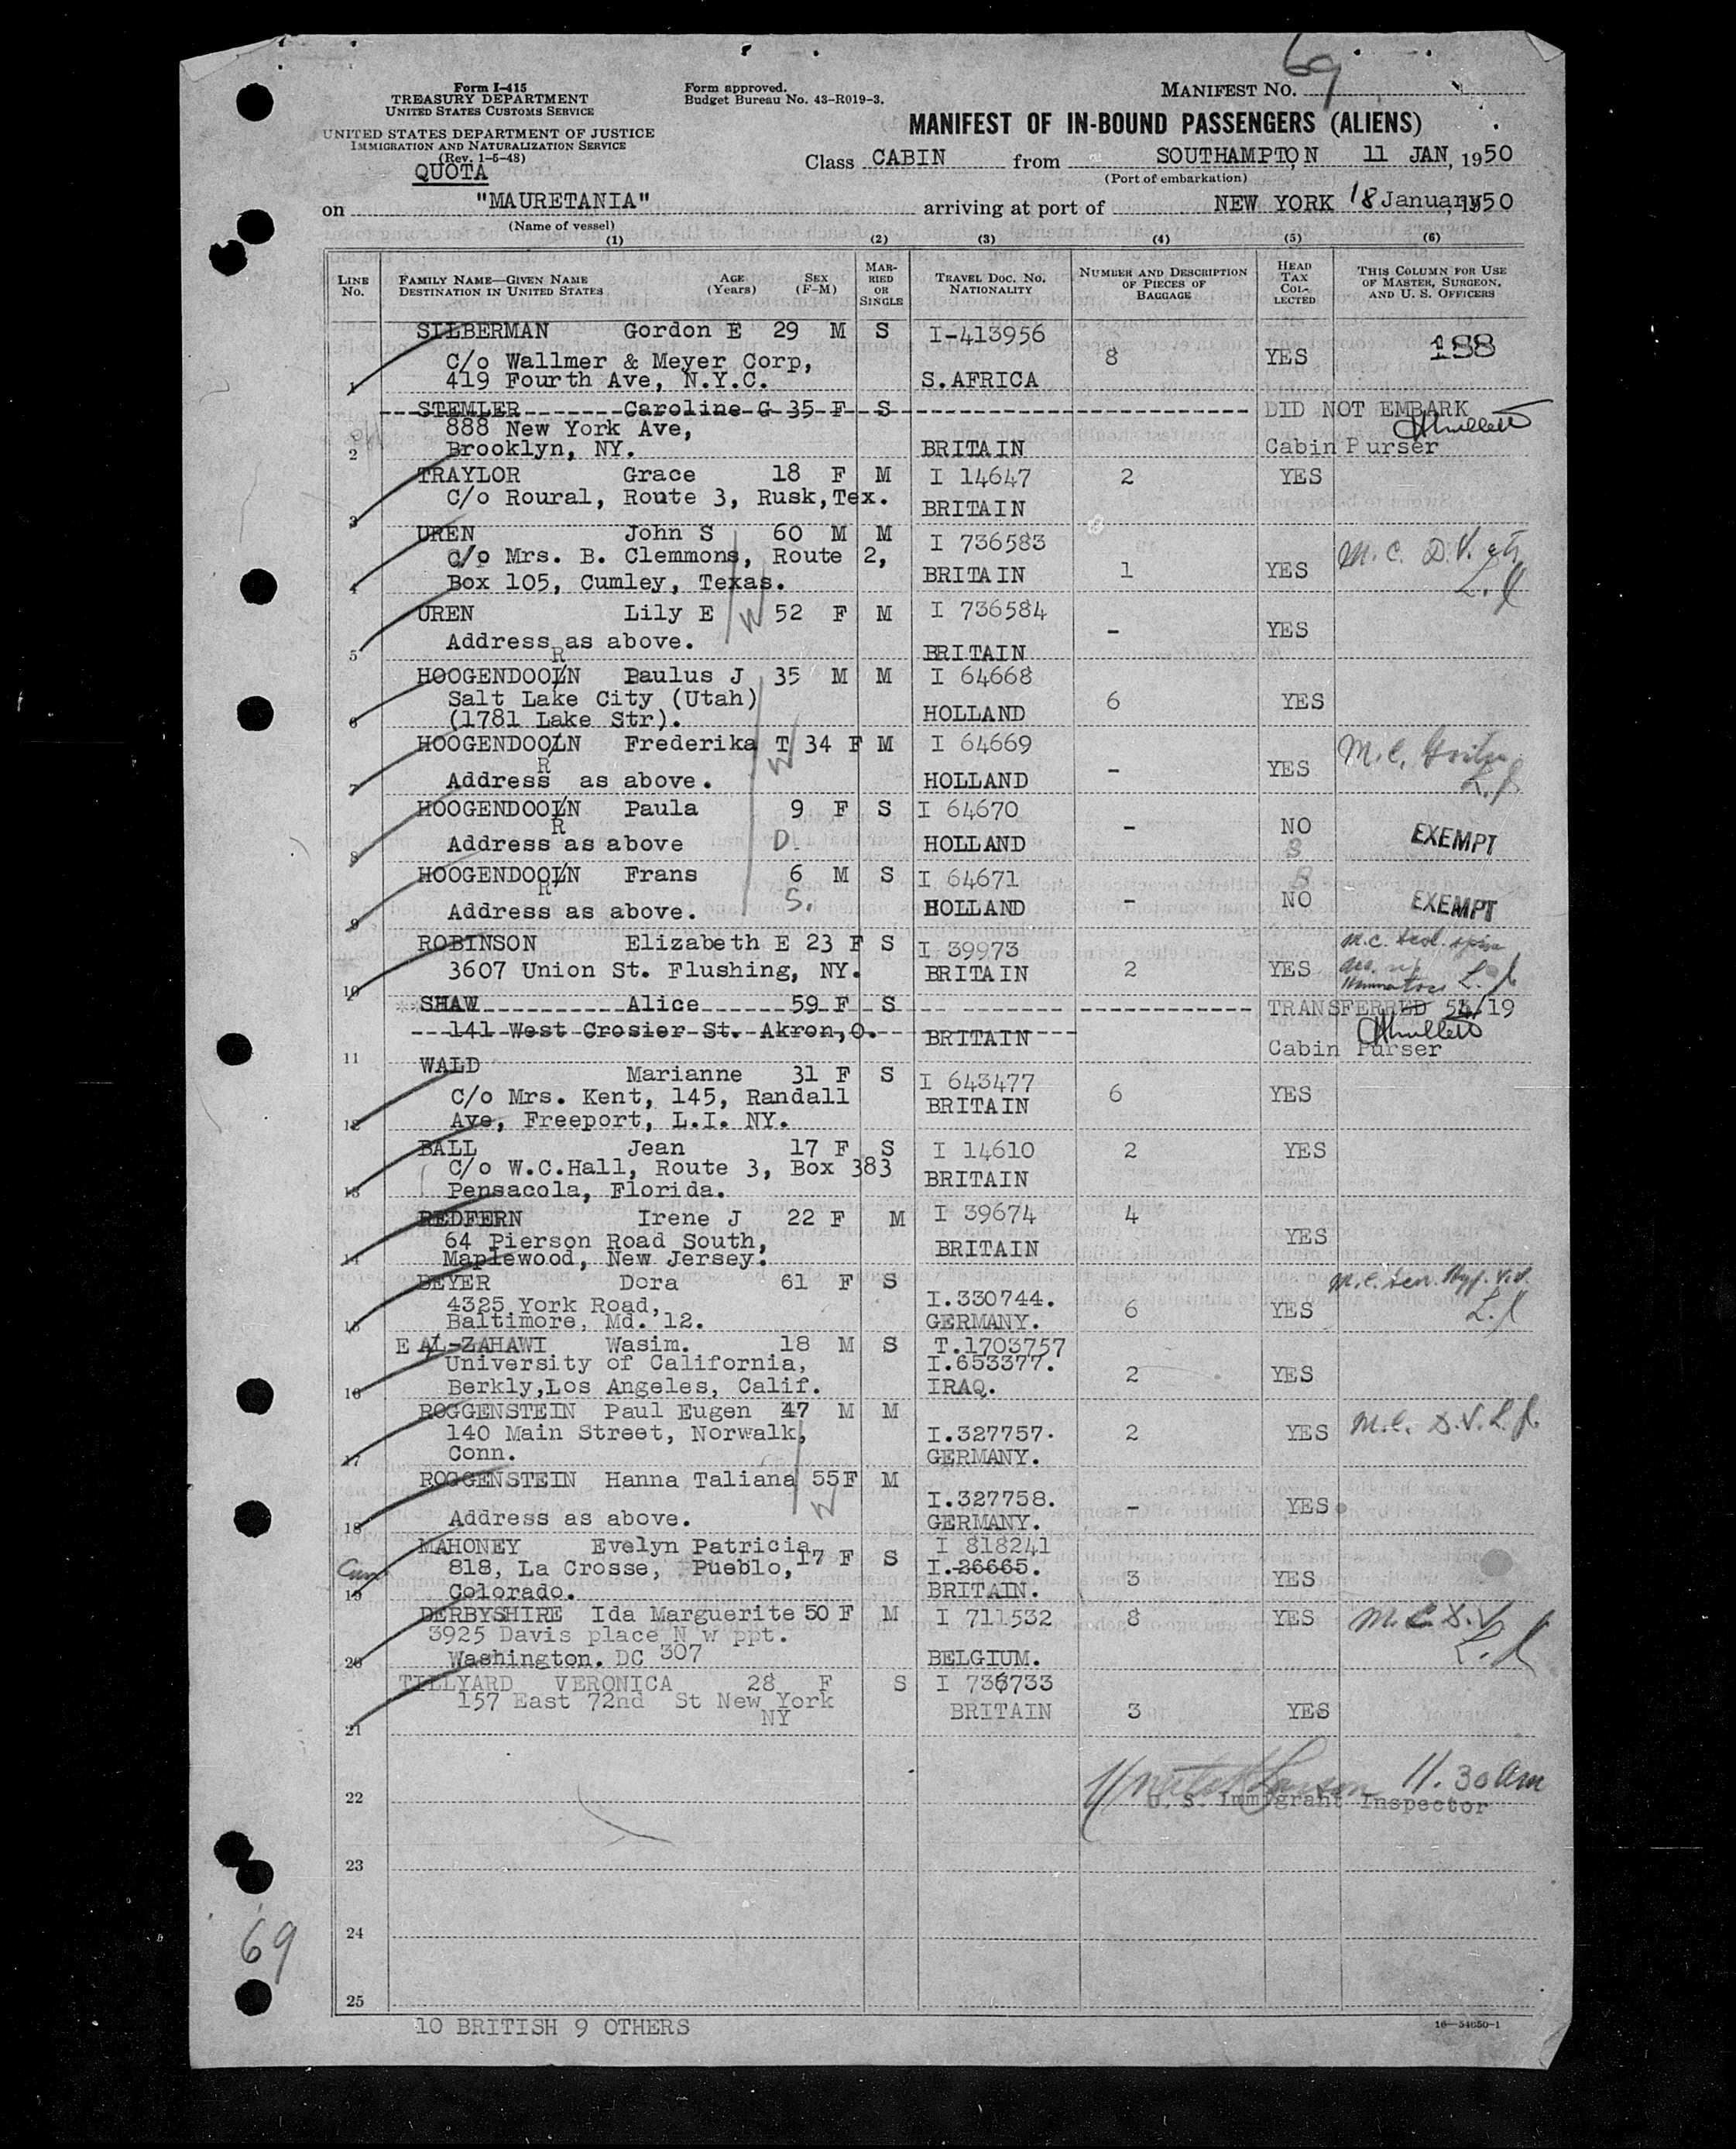 69
Form I-415
TREASURY DEPARTMENT
UNITED STATES CUSTOMS SERVICE
UNITED STATES DEPARTMENT OF JUSTICE
IMMIGRATION AND NATURALIZATION SERVICE
(Rev. 1-5-48)
QUOTA
Form approved.
Budget Bureau No. 43-R019-3.
MANIFEST No.
MANIFEST OF IN-BOUND PASSENGERS (ALIENS)
Class CABIN from SOUTHAMPTON 11 JAN, 1950
(Port of embarkation)
on "MAURETANIA" arriving at port of NEW YORK 18 January 1950
(Name of vessel)
(1) (2) (3) (4) (5) (6)
LINE No. FAMILY NAME—GIVEN NAME DESTINATION IN UNITED STATES AGE (Years) SEX (F-M) MARRIED OR SINGLE TRAVEL DOC. NO. NATIONALITY NUMBER AND DESCRIPTION OF PIECES OF BAGGAGE HEAD TAX COLLECTED THIS COLUMN FOR USE OF MASTER, SURGEON, AND U. S. OFFICERS
SILBERMAN Gordon E 29 M S I-413956
C/o Wallmer & Meyer Corp, 8 YES 188
1 419 Fourth Ave, N.Y.C. S.AFRICA
STEMLER Caroline G 35 F S DID NOT EMBARK
888 New York Ave,
2 Brooklyn, NY. BRITAIN Cabin Purser
TRAYLOR Grace 18 F M I 14647 2 YES
C/o Roural, Route 3, Rusk,Tex.
3 BRITAIN
UREN John S 60 M M I 736583
C/o Mrs. B. Clemmons, Route 2, M.C. D.V.
4 Box 105, Cumley, Texas. BRITAIN 1 YES L.J
UREN Lily E W 52 F M I 736584
Address as above. - YES
5 BRITAIN
R
HOOGENDOOLN Paulus J 35 M M I 64668
Salt Lake City (Utah) 6 YES
6 (1781 Lake Str). HOLLAND
HOOGENDOOLN Frederika T 34 F M I 64669 M.C.
R W
7 Address as above. HOLLAND - YES L.J
HOOGENDOOLN Paula 9 F S I 64670
R - NO
8 Address as above D. HOLLAND EXEMPT
HOOGENDOOLN Frans 6 M S I 64671
R S.
9 Address as above. HOLLAND - NO EXEMPT
ROBINSON Elizabeth E 23 F S I 39973 M.C.
10 3607 Union St. Flushing, NY. BRITAIN 2 YES L.J
SHAW Alice 59 F S TRANSFERRED 54/19
141 West Crosier St. Akron,O. BRITAIN
11 Cabin Purser
WALD Marianne 31 F S I 643477
C/o Mrs. Kent, 145, Randall BRITAIN 6 YES
12 Ave, Freeport, L.I. NY.
BALL Jean 17 F S I 14610 2 YES
C/o W.C.Hall, Route 3, Box 383
13 Pensacola, Florida. BRITAIN
REDFERN Irene J 22 F M I 39674 4
64 Pierson Road South, YES
14 Maplewood, New Jersey. BRITAIN
BEYER Dora 61 F S M.C.
4325 York Road, I.330744. 6 YES L.J
15 Baltimore, Md. 12. GERMANY.
E AL-ZAHAWI Wasim. 18 M S T.1703757
University of California, I.653377.
16 Berkly,Los Angeles, Calif. IRAQ. 2 YES
ROGGENSTEIN Paul Eugen 47 M M
140 Main Street, Norwalk, I.327757. 2 YES M.C. D.V. L.J.
17 Conn. GERMANY.
ROGGENSTEIN Hanna Taliana 55 F M
W I.327758. - YES
18 Address as above. GERMANY.
MAHONEY Evelyn Patricia 17 F S I 818241
818, La Crosse, Pueblo, I.26665.
19 Colorado. BRITAIN. 3 YES
DERBYSHIRE Ida Marguerite 50 F M I 711532 8 YES M.C. D.V
3925 Davis place N w ppt. L.J
20 Washington. DC 307 BELGIUM.
TILLYARD VERONICA 28 F S I 736733
157 East 72nd St New York BRITAIN 3 YES
21 NY
11.30 am
22 U. S. Immigrant Inspector
23
24
25
69
10 BRITISH 9 OTHERS
16—54650-1